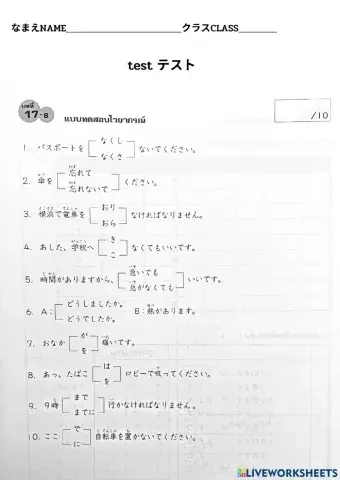 なまえNAME____________________クラスCLASS________
test テスト
บทที่
17-B
แบบทดสอบไวยากรณ์
/10
1. パスポートを [なくし / なくさ] ないでください。
2. 傘を [忘れて / 忘れないで] ください。
3. 横浜で電車を [おり / おら] なければなりません。
4. あした、学校へ [き / こ] なくてもいいです。
5. 時間がありますから、[急いでも / 急がなくても] いいです。
6. A：[どうしましたか。 / どうでしたか。] B：熱があります。
7. おなか [が / を] 痛いです。
8. あっ、たばこ [は / を] ロビーで吸ってください。
9. 9時 [まで / までに] 行かなければなりません。
10. ここ [で / に] 自転車を置かないでください。
CS CamScanner
LIVEWORKSHEETS